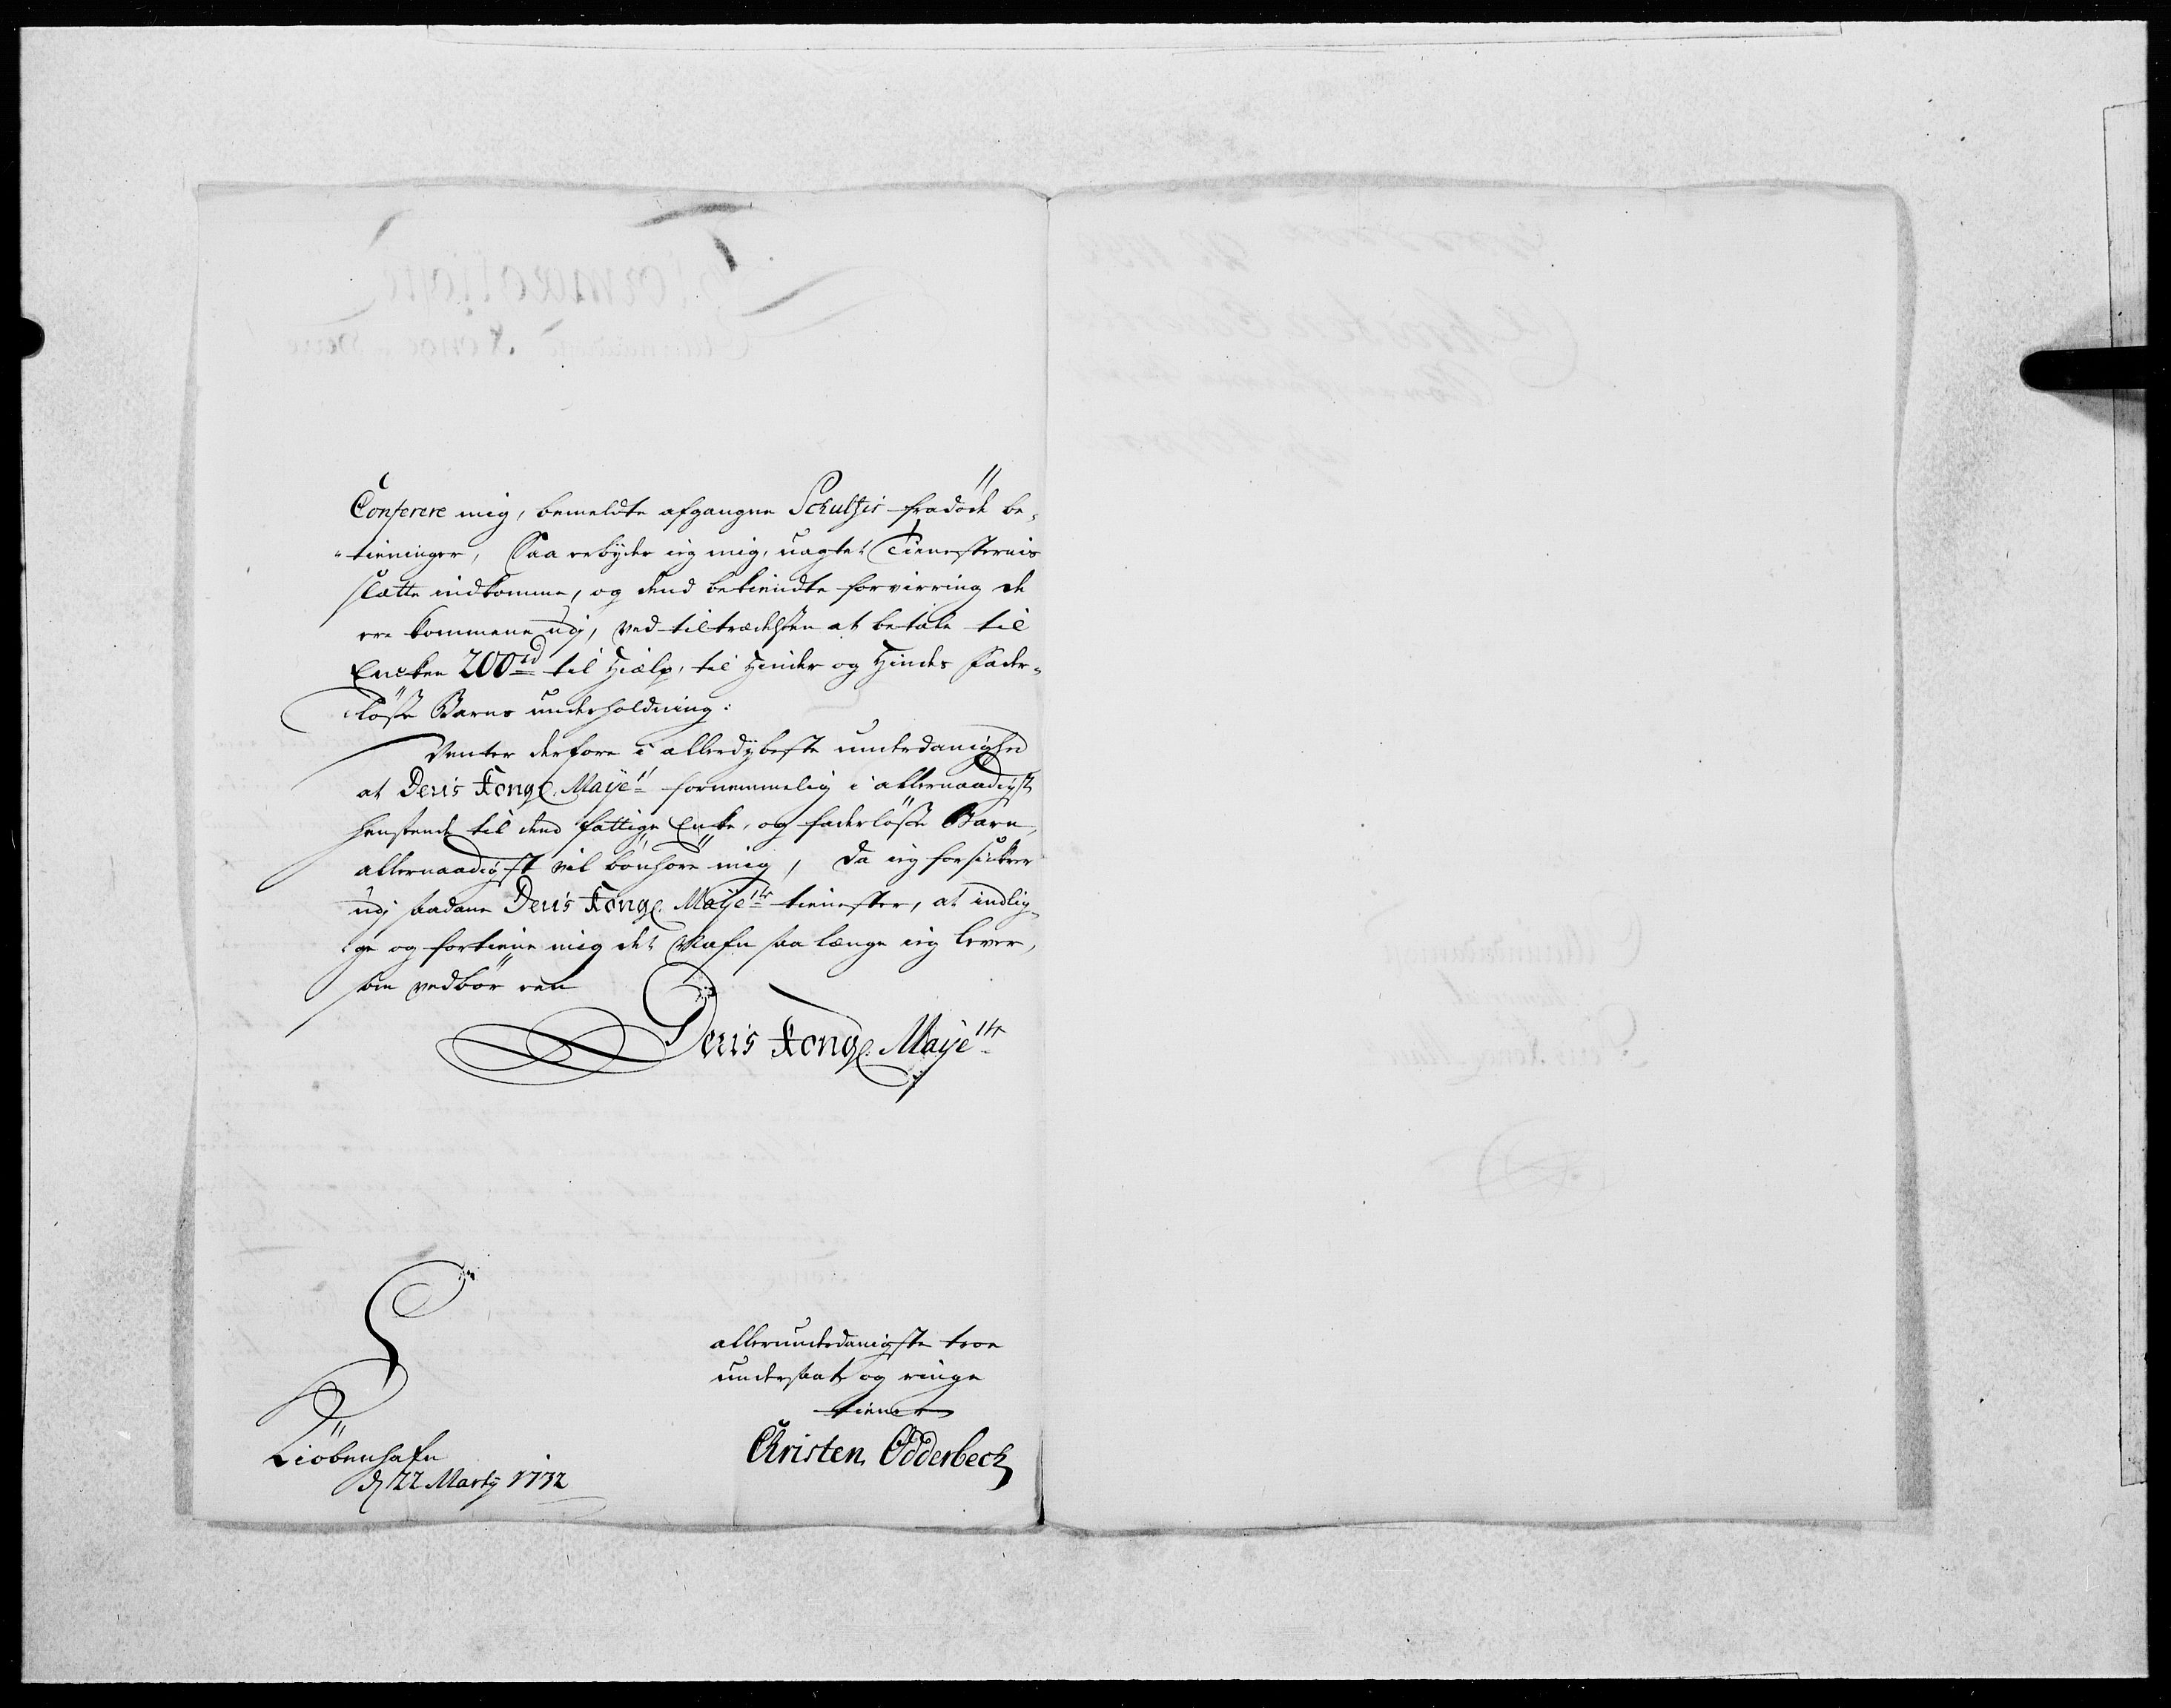 Conferere mig, bemeldte afgangne Schultzis fradöde be-
tieninger, Saa erbyder ieg mig, uagtet Tienesternis
slætte indkomme, og dend bekiendte forvirring de
ere kommene udj, ved tiltrædelsen at betale til
Encken 200rd til Hielp, til Hinder og Hindes Fader-
löße Barns underholdning:
Venter derfore i allerdybeste underdanighed
at Deris Kongl. Mayetz fornemmelig i allernaadigst
henseende til dend fattige Enke, og faderlöße Barn,
allernaadigst vil bönhöre mig, da ieg forsickrer
udj saadane Deris Kongl. Mayetts tienester, at indlig-
ge og fortiene mig det Nafn saa længe ieg lever,
som vedbör een
Deris Kongl. Mayetts
allerunderdanigste troe
undersaat og ringe
tiener
Christen Odderbeck
Kiöbenhafn
d 22 Marty 1732